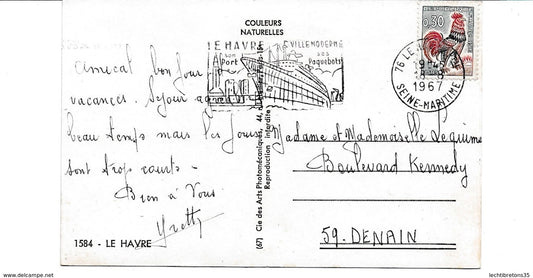 COULEURS
NATURELLES
LE HAVRE
son
Port
VILLE MODERNE
ses
Paquebots
0,30
76 LE
1967
SEINE-MARITIME
Amical bonjour
vacances. Séjour
beau temps mais les jours
sont trop courts.
Bien à Vous
Yvette
1584 - LE HAVRE
(67) Cie des Arts Photomécaniques, 44,
Reproduction interdite
Madame et Mademoiselle
Boulevard Kennedy
59. DENAIN
delcampe.net
lechtibretons35